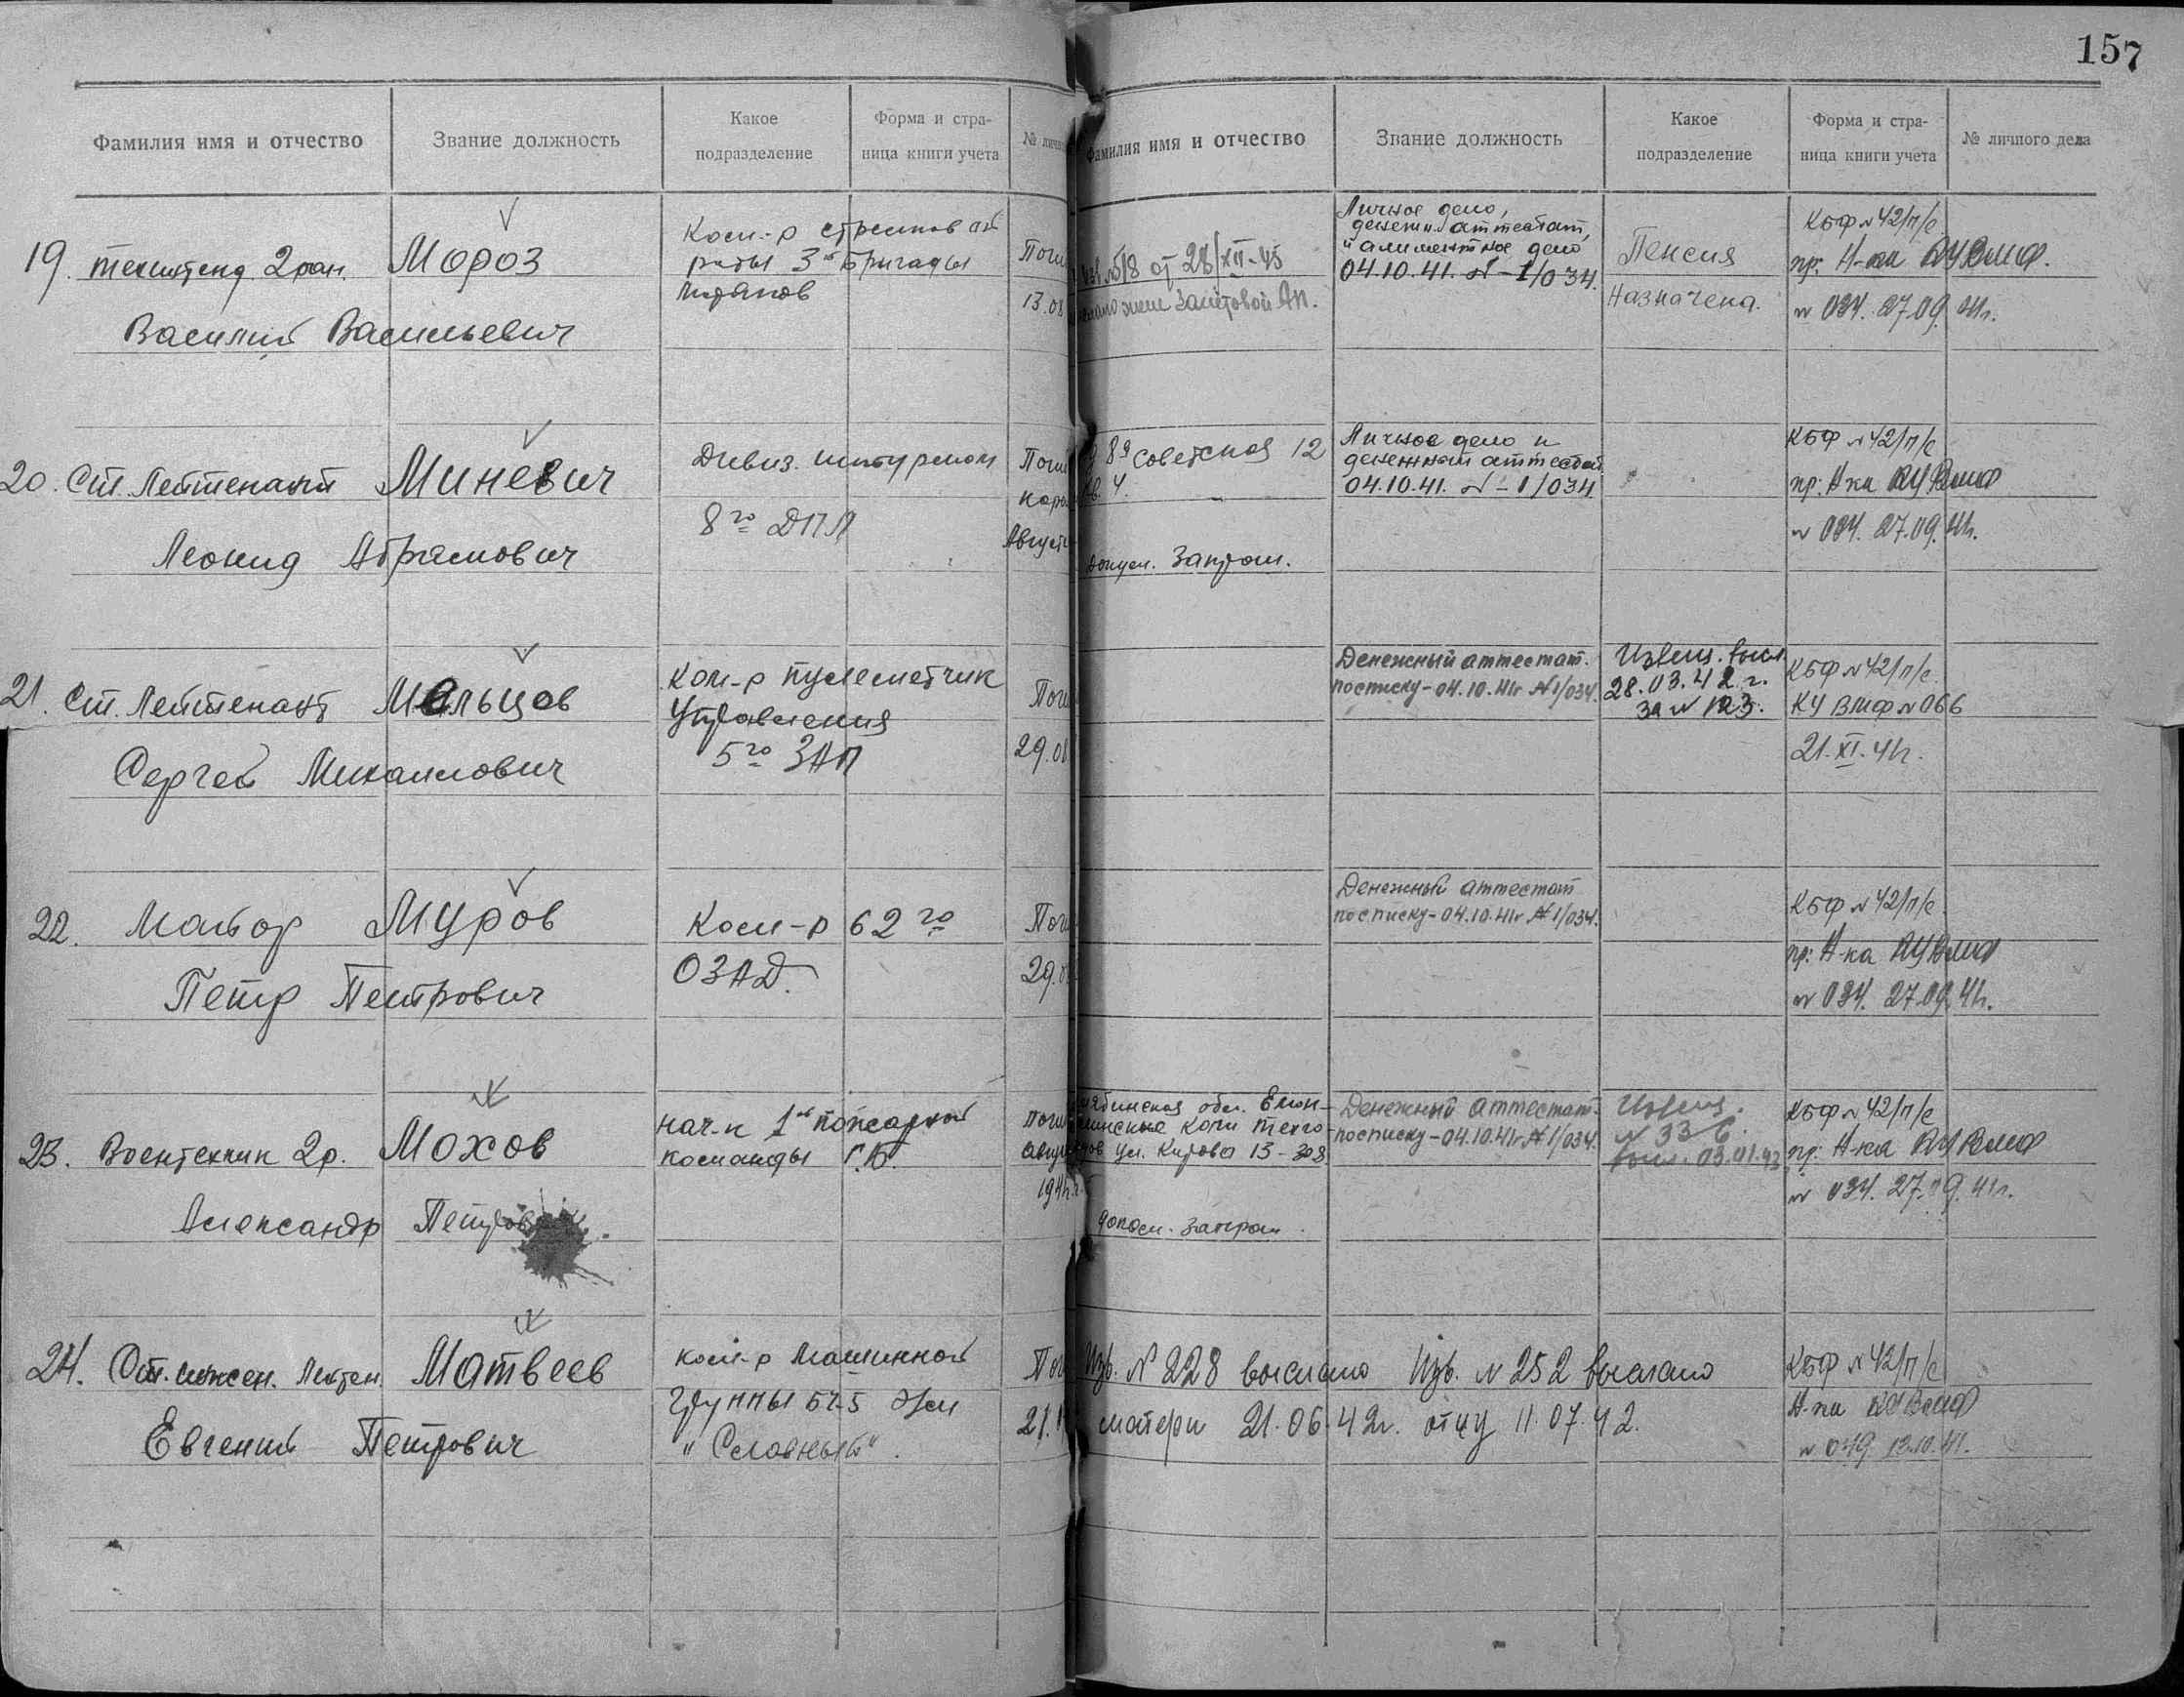 157
Фамилия имя и отчество
Звание должность
Какое подразделение
Форма и страница книги учета
№ лично
Фамилия имя и отчество
Звание должность
Какое подразделение
Форма и страница книги учета
№ личного дела
19. техинтенд 2 ранг. Мороз
Василий Васильевич
Ком-р
роты 3й бригады
Поги
13.08
от 28/XII-45
Личное дело,
денежн. аттестат,
и алиментное дело
04.10.41. N-1/034.
Пенсия
Назначена.
КБФ N 42/п/с
пр. Н-ка КУ ВМФ.
N 034. 27.09. 41г.
20. Ст. Лейтенант Миневич
Леонид Абрамович
Дивиз. штурман
8го ДПЛ
Поги
кора
Август
8я Советская 12
кв. 4.
Запрош.
Личное дело и
денежный аттестат
04.10.41. N-1/034
КБФ N 42/п/с
пр. Н-ка КУ ВМФ
N 034. 27.09. 41г.
21. Ст. Лейтенант Мальцов
Сергей Михаилович
Ком-р пулеметчик
Управления
5го ЗАП
Поги
29.08
Денежный аттестат.
по списку-04.10.41г N1/034.
Извещ. высл.
28.03.42 г.
за N 123.
КБФ N 42/п/с.
КУ ВМФ N 066
21.XI.41г.
22. Майор Муров
Петр Петрович
Ком-р 62го
ОЗАД.
Поги
29.0
Денежный аттестат
по списку-04.10.41г N1/034.
КБФ N 42/п/с
пр. Н-ка КУ ВМФ
N 034. 27.09. 41г.
23. Воентехник 2р. Мохов
Александр Петров
нач-к 1й пожарной
команды Г.Б.
Поги
август
1941г.
обл.
копи
ул. Кирова 13-308
допол. запрош.
Денежный аттестат.
по списку-04.10.41г N1/034.
Извещ.
N 336.
высл. 03.01.43
КБФ N 42/п/с
пр. Н-ка КУ ВМФ
N 034. 27.09. 41г.
24. Ст. инжен. Лейтен. Матвеев
Евгений Петрович
ком-р Машинной
группы БЧ-5 Эм
"Славный".
Пог
21.1
Изв. N 228 выслано Изв. N 252 выслано
матери 21.06.42г. отцу 11.07.42.
КБФ N 42/п/с
Н-ка КУ ВМФ
N 049 13.10.41.